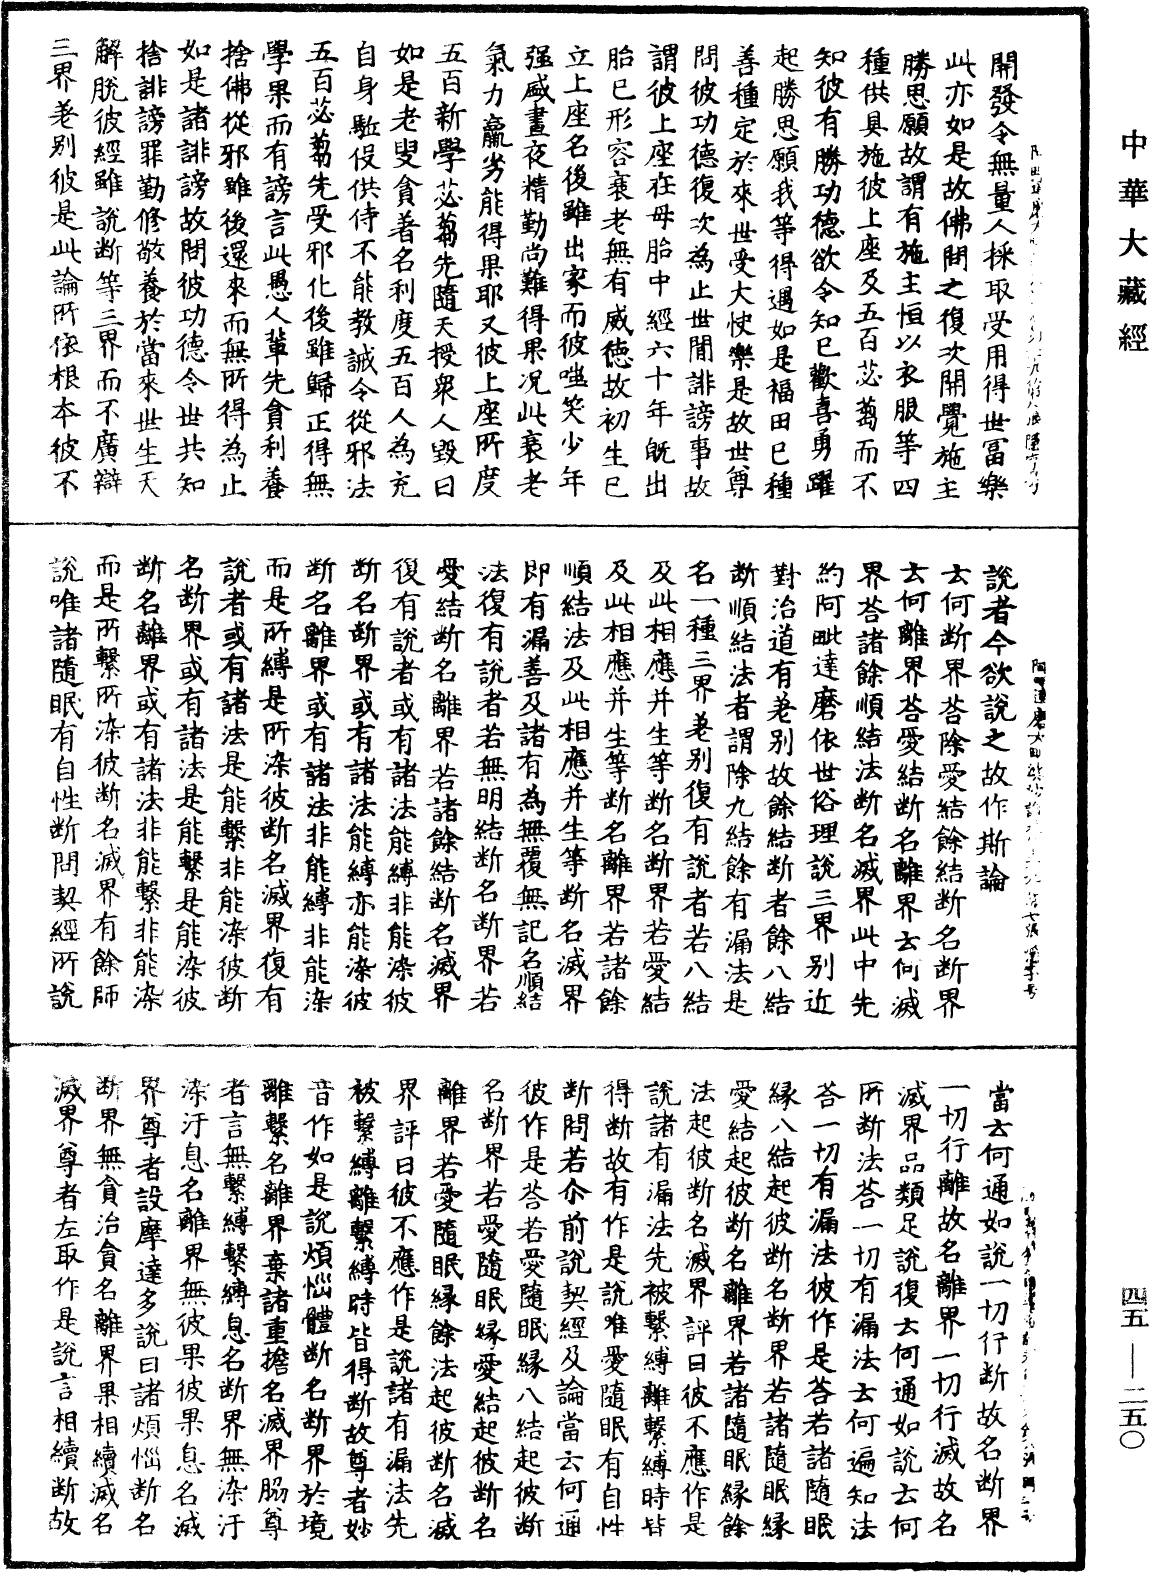 中華大藏經
開發令無量人採取受用得世冨樂
此亦如是故佛問之復次開覺施主
勝思願故謂有施主恒以衣服等四
種供具施彼上座及五百苾蒭而不
知彼有勝功德欲令知已歡喜勇躍
起勝思願我等得遇如是福田已種
善種定於來世受大快樂是故世尊
問彼功德復次為止世間誹謗事故
謂彼上座在母胎中經六十年既出
胎已形容衰老無有威德故初生已
立上座名後雖出家而彼嗤笑少年
强盛晝夜精勤尚難得果况此衰老
氣力羸劣能得果耶又彼上座所度
五百新學苾蒭先隨天授衆人毀曰
如是老叟貪著名利度五百人為充
自身駈役供侍不能教誡令從邪法
五百苾蒭先受邪化後雖歸正得無
學果而有謗言此愚人軰先貪利養
捨佛從邪雖後還來而無所得為止
如是諸誹謗故問彼功德令世共知
捨誹謗罪勤修敬養於當來世生天
解脫彼經雖說断等三界而不廣辯
三界差别彼是此論所依根本彼不
說者今欲說之故作斯論
云何断界荅除愛結餘結断名断界
云何離界荅愛結断名離界云何滅
界荅諸餘順結法断名滅界此中先
約阿毗達磨依世俗理說三界别近
對治道有差别故餘結断者餘八結
断順結法者謂除九結餘有漏法是
名一種三界差别復有說者若八結
及此相應并生等断名断界若愛結
及此相應并生等断名離界若諸餘
順結法及此相應并生等断名滅界
即有漏善及諸有為無覆無記名順結
法復有說者若無明結断名断界若
愛結断名離界若諸餘結断名滅界
復有說者或有諸法能縛非能染彼
断名断界或有諸法能縛亦能染彼
断名離界或有諸法非能縛非能染
而是所縛是所染彼断名滅界復有
說者或有諸法是能繫非能染彼断
名断界或有諸法是能繫是能染彼
断名離界或有諸法非能繫非能染
而是所繫所染彼断名滅界有餘師
說唯諸隨眠有自性断問契經所說
當云何通如說一切行断故名断界
一切行離故名離界一切行滅故名
滅界品類足說復云何通如說云何
所断法荅一切有漏法云何遍知法
荅一切有漏法彼作是荅若諸隨眠
緣八結起彼断名断界若諸隨眠緣
愛結起彼断名離界若諸隨眠緣餘
法起彼断名滅界評曰彼不應作是
說諸有漏法先被繫縛離繫縛時皆
得断故有作是說唯愛隨眠有自性
断問若尒前說契經及論當云何通
彼作是荅若愛隨眠緣八結起彼断
名断界若愛隨眠緣愛結起彼断名
離界若愛隨眠緣餘法起彼断名滅
界評曰彼不應作是說諸有漏法先
被繫縛離繫縛時皆得断故尊者妙
音作如是說煩惱體断名断界於境
離繫名離界棄諸重擔名滅界脇尊
者言無繫縛繫縛息名断界無染汙
染汙息名離界無彼果彼果息名滅
界尊者設摩達多說曰諸煩惱断名
断界無貪治貪名離界果相續滅名
滅界尊者左取作是說言相續断故
四五—二五〇